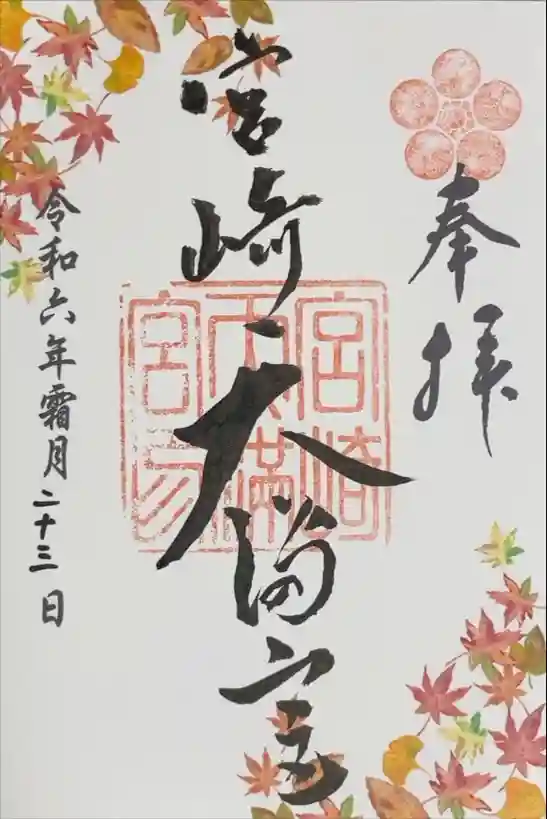 奉拝
宮崎天満宮
令和六年霜月二十三日
宮崎
天満
宮